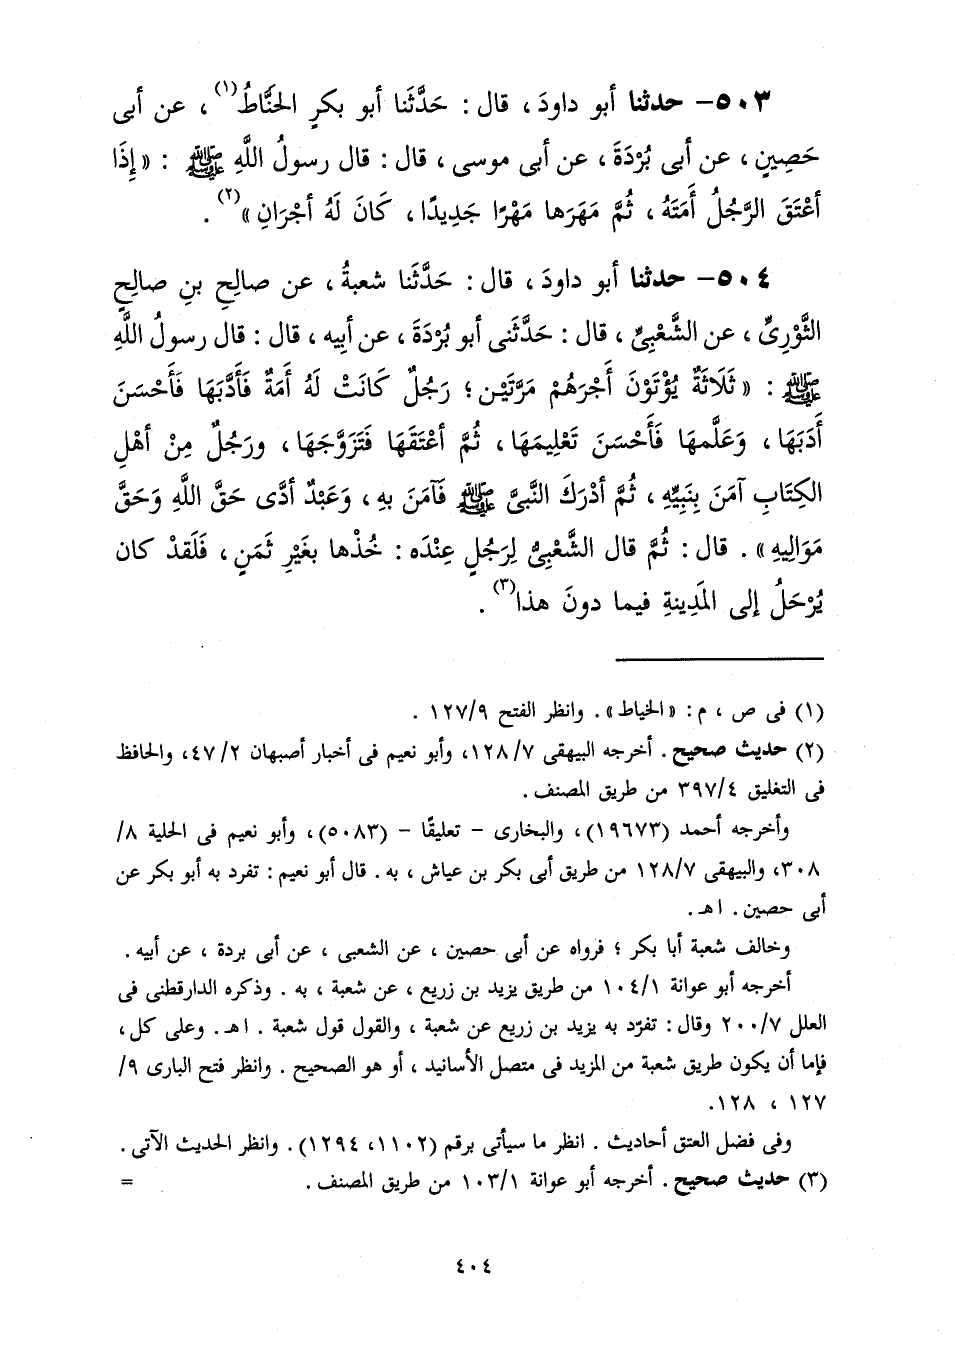 ٥٠٣– حدثنا أبو داودَ ، قال : حَدَّثَنا أبو بكرٍ الحَنَّاطُ(١) ، عن أبى
حَصِينٍ ، عن أبى بُرْدَةَ ، عن أبى موسى ، قال : قال رسولُ اللَّهِ ﷺ : « إِذَا
أعْتَقَ الرَّجُلُ أَمَتَهُ ، ثُمَّ مَهَرَها مَهْرًا جَدِيدًا ، كَانَ لَهُ أجْرَانِ »(٢) .
٥٠٤– حدثنا أبو داودَ ، قال : حَدَّثَنا شعبةُ ، عن صالحِ بنِ صالحٍ
الثَّوْرِىِّ ، عن الشَّعْبِىِّ ، قال : حَدَّثَنى أبو بُرْدَةَ ، عن أبِيه ، قال : قال رسولُ اللَّهِ
ﷺ : « ثَلَاثَةٌ يُؤْتَوْنَ أَجْرَهُمْ مَرَّتَيْنِ ؛ رَجُلٌ كَانَتْ لَهُ أمَةٌ فَأَدَّبَهَا فَأَحْسَنَ
أَدَبَهَا ، وَعَلَّمهَا فَأَحْسَنَ تَعْلِيمَهَا ، ثُمَّ أعْتَقَهَا فَتَزَوَّجَهَا ، ورَجُلٌ مِنْ أهْلِ
الكِتَابِ آمَنَ بِنَبِيِّهِ ، ثُمَّ أدْرَكَ النَّبِىَّ ﷺ فَآمَنَ بهِ ، وَعَبْدٌ أدَّى حَقَّ اللَّهِ وَحَقَّ
مَوَالِيهِ » . قال : ثُمَّ قال الشَّعْبِىُّ لِرَجُلٍ عِنْدَه : خُذْها بغَيْرِ ثَمَنٍ ، فَلَقدْ كان
يُرْحَلُ إلى المَدِينةِ فيما دونَ هذا(٣) .
(١) فى ص ، م : « الخياط » . وانظر الفتح ١٢٧/٩ .
(٢) حديث صحيح . أخرجه البيهقى ١٢٨/٧، وأبو نعيم فى أخبار أصبهان ٤٧/٢، والحافظ
فى التغليق ٣٩٧/٤ من طريق المصنف .
وأخرجه أحمد (١٩٦٧٣)، والبخارى – تعليقًا – (٥٠٨٣)، وأبو نعيم فى الحلية ٨/
٣٠٨، والبيهقى ١٢٨/٧ من طريق أبى بكر بن عياش ، به . قال أبو نعيم : تفرد به أبو بكر عن
أبى حصين . اهـ .
وخالف شعبة أبا بكر ؛ فرواه عن أبى حصين ، عن الشعبى ، عن أبى بردة ، عن أبيه .
أخرجه أبو عوانة ١٠٤/١ من طريق يزيد بن زريع ، عن شعبة ، به . وذكره الدارقطنى فى
العلل ٢٠٠/٧ وقال : تفرّد به يزيد بن زريع عن شعبة ، والقول قول شعبة . اهـ . وعلى كل ،
فإما أن يكون طريق شعبة من المزيد فى متصل الأسانيد ، أو هو الصحيح . وانظر فتح البارى ٩/
١٢٧ ، ١٢٨.
وفى فضل العتق أحاديث . انظر ما سيأتى برقم (١١٠٢، ١٢٩٤) . وانظر الحديث الآتى .
(٣) حديث صحيح . أخرجه أبو عوانة ١٠٣/١ من طريق المصنف . =
٤٠٤